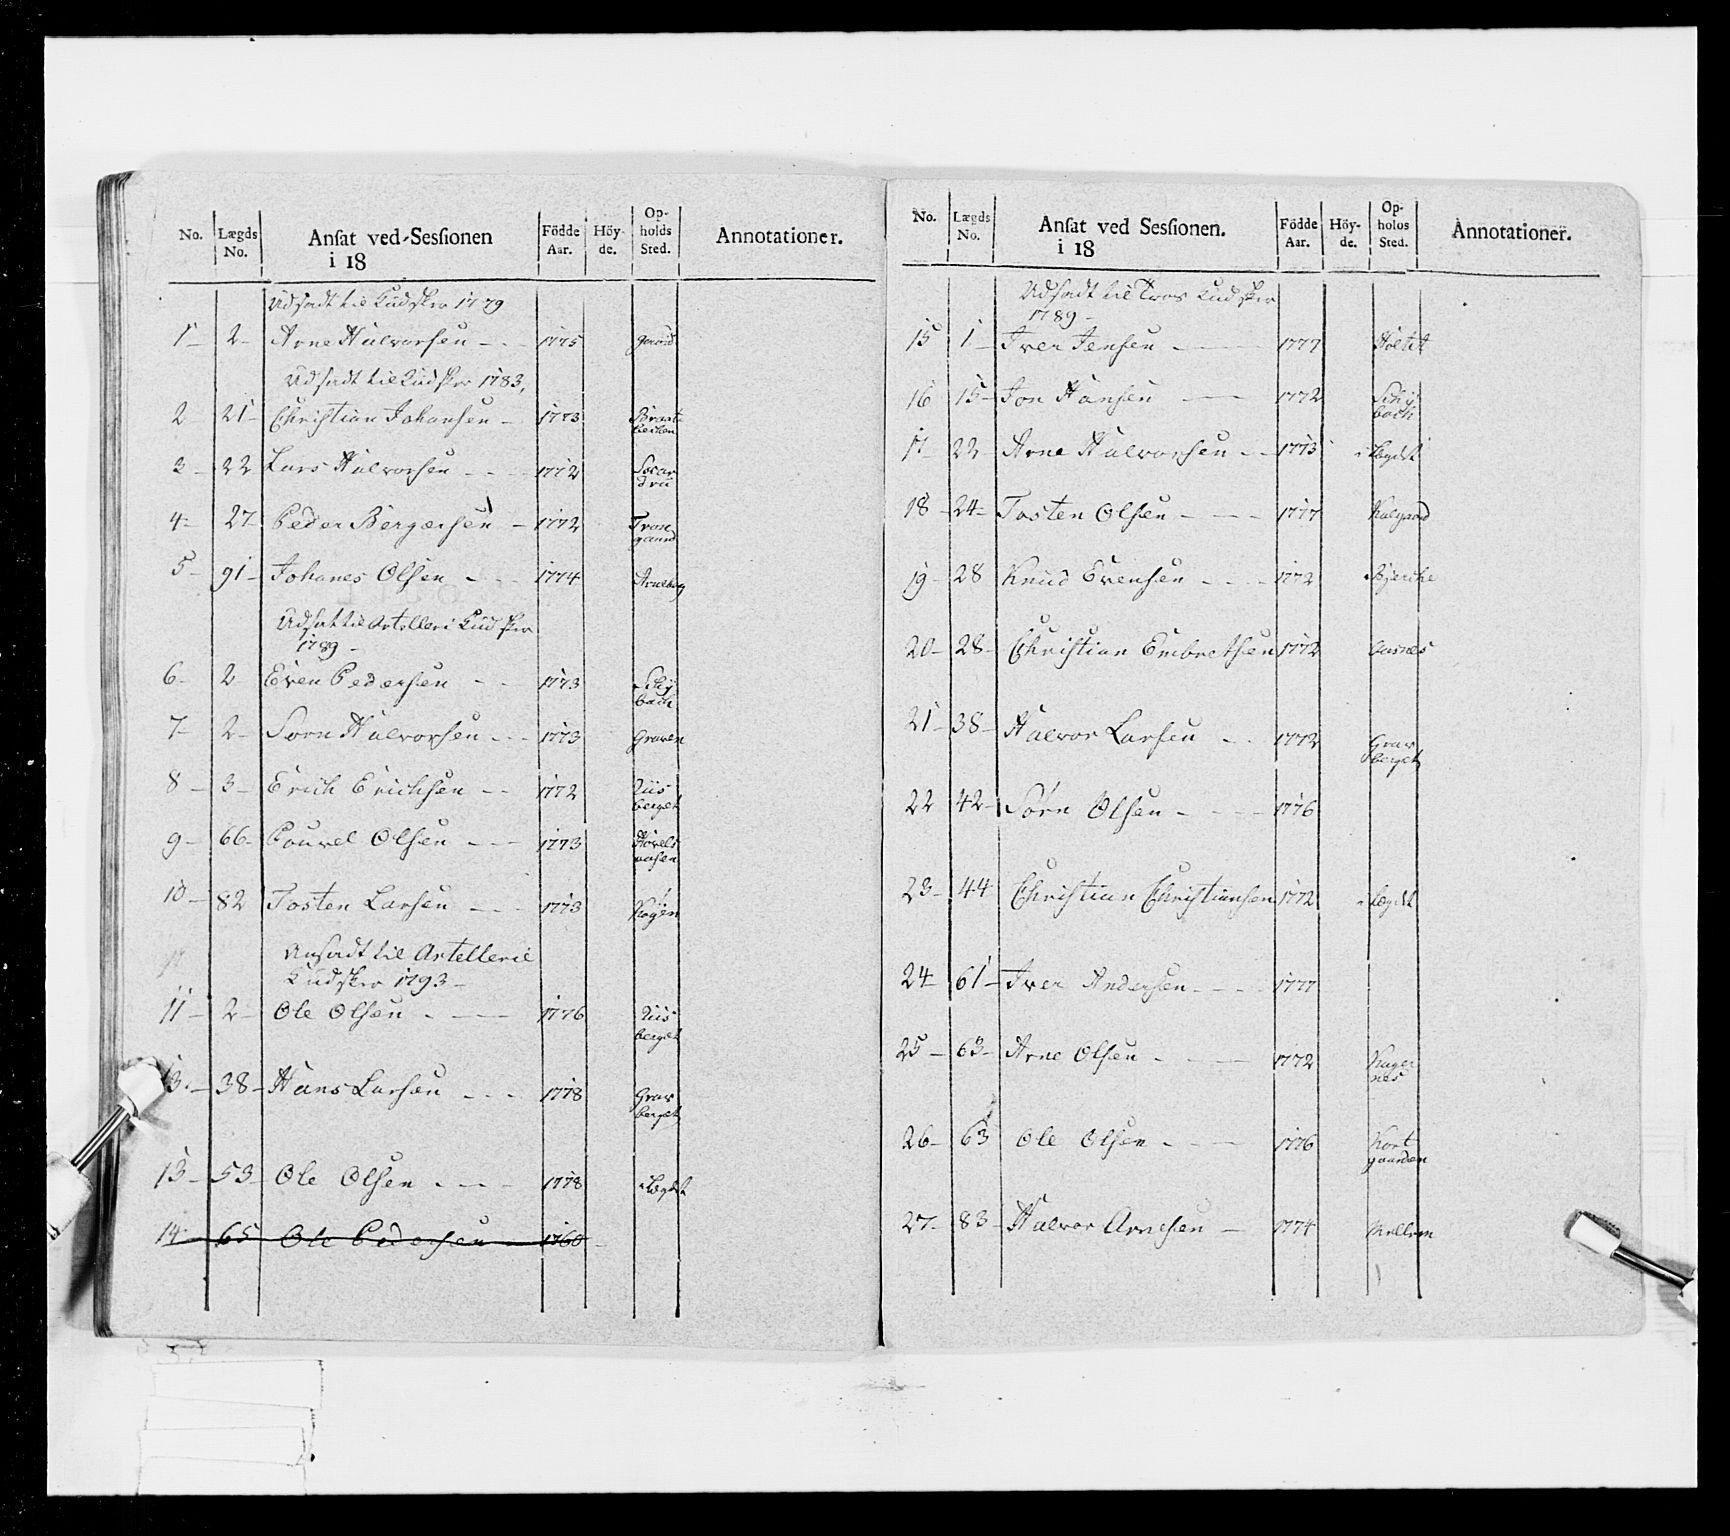 No. Lægds No. Ansat ved Sessionen i 18 Födde Aar. Höyde. Opholds Sted. Annotationer.
Udsadt til Kudsker 1779
1 2 Arne Halvorsen 1775 gaard
Udsadt til Kudsker 1783,
2 21 Christian Johansen 1773
3 22 Lars Halvorsen 1772
4 27 Peder Bergersen 1772
5 91 Johanes Olsen 1774 Arneberg
Udsat til Artelleri Kudsker
1789
6 2 Even Pedersen 1773
7 2 Sørn Halvorsen 1773 Graven
8 3 Erich Erichsen 1772 Riis
berget
9 66 Pouvel Olsen 1773
10 82 Tosten Larsen 1773
11
Ansadt til Artellerie
Kudsker 1793
11 2 Ole Olsen 1776 Riis
berget
13. 38 Hans Larsen 1778 Grav
berget
13 53 Ole Olsen 1778 Lægdet
14 65 Ole Pedersen 1760
No. Lægds No. Ansat ved Sessionen. i 18 Födde Aar. Höyde. Opholds Sted. Annotationer.
Udsadt til Tros Kudsker
1789
15 1 Iver Jensen 1777 Holtet
16 15 Jon Hansen 1772
17 22 Arne Halvorsen 1773 i Lægdet
18 24 Tosten Olsen 1777
19 28 Knud Evensen 1772 Bjerche
20 28 Christian Embretsen 1772 Aasnes
21 38 Halvor Larsen 1772 Grav
berget
22 42 Sørn Olsen 1776
23 44 Christian Christiansen 1772 i Lægdet
24 61 Iver Andersen 1777
25 63 Arne Olsen 1772
nes
26 63 Ole Olsen 1776
gaarden
27 83 Halvor Arnesen 1774 Mellem